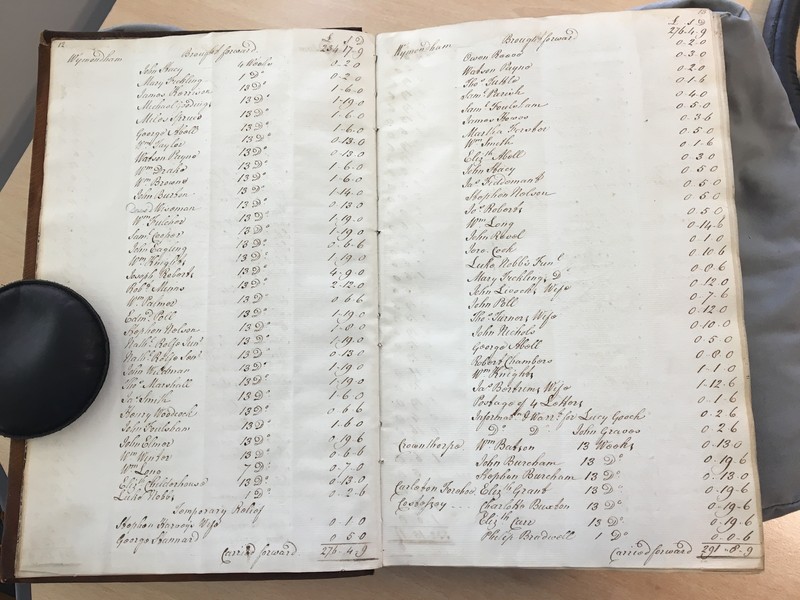 12
£ S D
Wymondham Brought forward 234-17-9
John Stacy 4 Weeks 0-2-0
Mary Fickling 1 Do 0-2-0
James Harrison 13 Do 1-6-0
Michael 13 Do 1-19-0
Miles Spruce 13 Do 1-6-0
George Aboll 13 Do 1-6-0
Wm Taylor 13 Do 0-13-0
Watson Payne 13 Do 0-13-0
Wm Drake 13 Do 1-6-0
Wm Browne 13 Do 1-6-0
13 Do 1-14-0
David Wiseman 13 Do 0-13-0
Wm Fulcher 13 Do 1-19-0
Saml Cooper 13 Do 1-19-0
John Eagling 13 Do 0-6-6
Wm Knights 13 Do 1-19-0
Joseph Roberts 13 Do 4-9-0
Robt Manns 13 Do 2-12-0
Wm Palmer 13 Do 0-6-6
Edmd Poll 13 Do 1-19-0
Stephen Dolson 13 Do 1-0-0
Nathl Rolfe Junr 13 Do 1-19-0
Nathl Rolfe Senr 13 Do 0-13-0
John 13 Do 1-19-0
Thos Marshall 13 Do 1-19-0
Jas Smith 13 Do 1-6-0
Henry Woodcock 13 Do 0-6-6
John Foulsham 13 Do 1-6-0
John Elmer 13 Do 0-19-6
Wm Winter 13 Do 0-6-6
Wm Long 7 Do 0-7-0
Elizth Childerhouse 13 Do 0-13-0
Luke Nobbs 1 Do 0-2-6
Temporary Relief
Stephen Harveys Wife 0-1-0
George Stannard 0-5-0
Carried forward 276-4-9
13
£ S D
Wymondham Brought forward 276-4-9
Owen Reeve 0-2-0
Watson Payne 0-3-0
Thos Tuttle 0-2-0
Saml Parish 0-1-6
Saml Foulsham 0-4-0
James Howes 0-5-0
Martha Forster 0-3-6
Wm Smith 0-5-0
Elizth Aboll 0-1-6
John Stacy 0-3-0
Jas Fiddeman 0-5-0
Stephen Dolson 0-5-0
Jos Roberts 0-5-0
Wm Long 0-14-6
John Revel 0-1-0
Cock 0-10-6
Luke Nobbs Funl 0-8-6
Mary Ficklings Do 0-12-0
John Leeocks Wife 0-7-6
John Poll 0-12-0
Thos Turners Wife 0-10-0
John Nichols 0-5-0
George Aboll 0-8-0
Robert Chambers 1-1-0
Wm Knights 1-12-6
Jas Bertrems Wife 0-1-6
Postage of 4 Letters 0-2-6
Informatn & Warrt for Lucy Gooch 0-2-6
Do Do John Graves 0-13-0
Crownthorpe Wm Batson 13 Weeks 0-19-6
John Burcham 13 Do 0-13-0
Stephen Burcham 13 Do 0-19-6
Carleton Forehoe Elizth Grant 13 Do 0-19-6
Costessey Charlotte Buxton 13 Do 0-19-6
Elizth Carr 13 Do 0-0-6
Philip Bradwell 1 Do
Carried forward 291-8-9